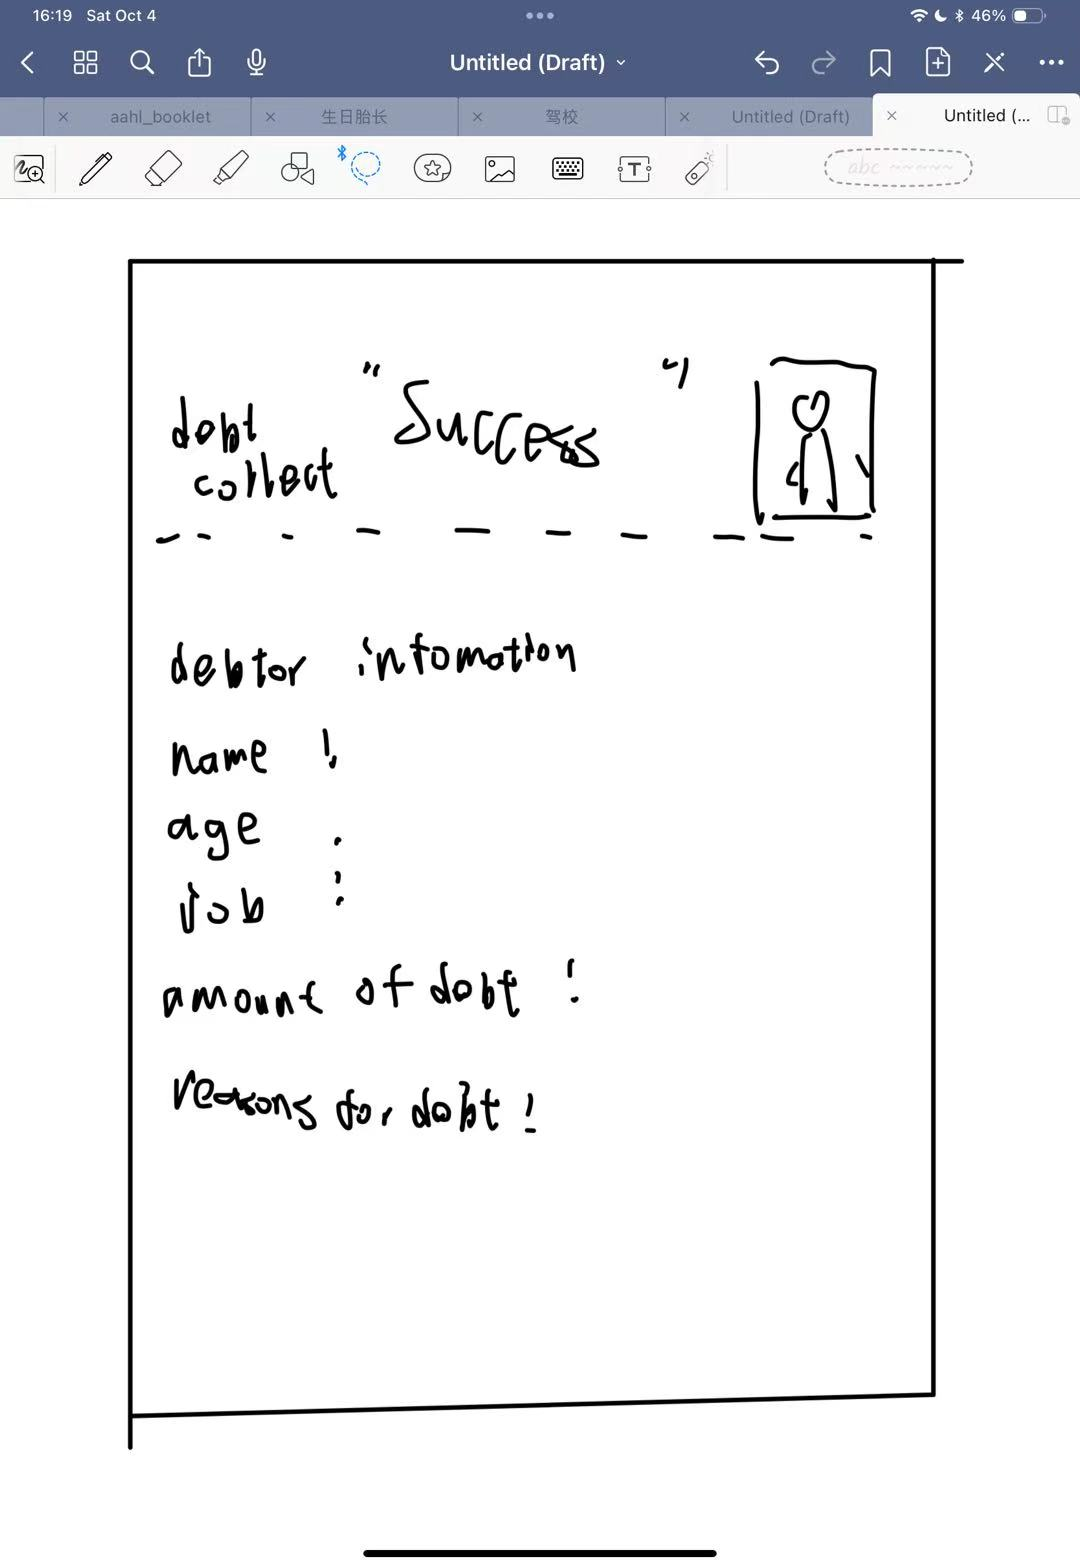 16:19 Sat Oct 4 46%
Untitled (Draft)
aahl_booklet 生日胎长 驾校 Untitled (Draft) Untitled (...
T abc
" Success "
debt
collect
debtor infomation
name :
age :
job :
amount of debt :
reasons for debt :